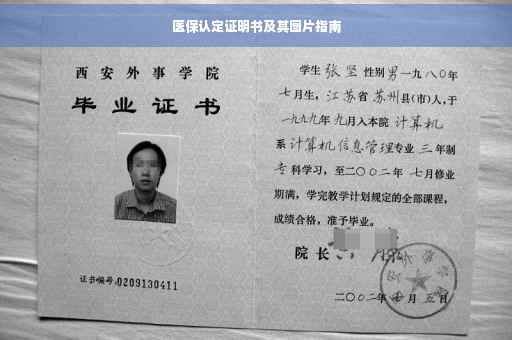 医保认定证明书及其图片指南
西安外事学院
毕业证书
证书编号:0209130411
学生 张坚 性别 男 一九八〇年
七月生, 江苏省 苏州 县(市)人, 于
一九九九年 九月入本院 计算机
系 计算机信息管理 专业 三 年制
专科学习, 至二〇〇二年 七月修业
期满, 学完教学计划规定的全部课程,
成绩合格, 准予毕业。
院长
二〇〇二年 月 五日